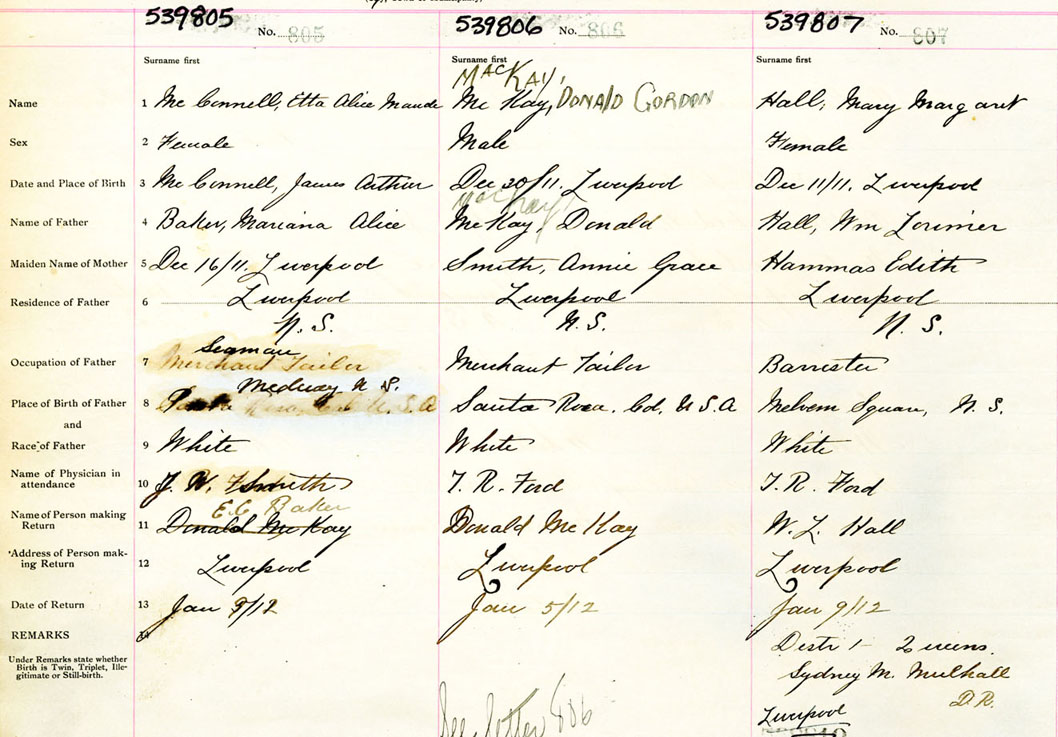 539805 No. 805 539806 No. 806 539807 No. 807
Surname first Surname first Surname first
MACKAY,
Name 1 Mc Connell, Etta Alice Maude Mc Kay, DONALD GORDON Hall, Mary Margaret
Sex 2 Female Male Female
Date and Place of Birth 3 Mc Connell, James Arthur Dec 20/11. Liverpool Dec 11/11. Liverpool
MacKay
Name of Father 4 Baker, Mariana Alice McKay, Donald Hall, Wm Lorimer
Maiden Name of Mother 5 Dec 16/11. Liverpool Smith, Annie Grace Hammas Edith
Residence of Father 6 Liverpool Liverpool Liverpool
N. S. N. S. N. S.
Seaman
Occupation of Father 7 Merchant Tailer Merchant Tailer Barrister
Medway N. S.
Place of Birth of Father 8 U. S. A Santa Rosa. Col, U S. A Melvern Square, N. S.
and
Race of Father 9 White White White
Name of Physician in
attendance 10 J. W. Smith T. R. Ford T. R. Ford
E.C Baker
Name of Person making
Return 11 Donald McKay Donald McKay W. L. Hall
Address of Person mak-
ing Return 12 Liverpool Liverpool Liverpool
Date of Return 13 Jan 9/12 Jan 5/12 Jan 9/12
REMARKS 14
Distr 1 -
Under Remarks state whether
Birth is Twin, Triplet, Ille-
gitimate or Still-birth.
Sydney M. Mulhall
D.R.
See letter 806
Liverpool